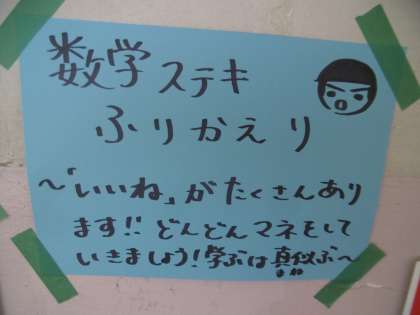 数学ステキ
ふりかえり
～「いいね」がたくさんあり
ます!! どんどんマネをして
いきましょう!学ぶは真似ぶ～